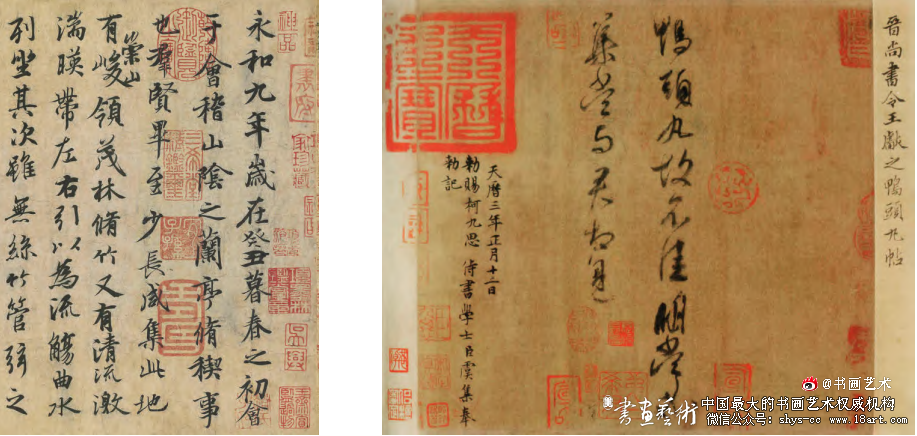 永和九年歲在癸丑暮春之初會
于會稽山陰之蘭亭脩稧事
也羣賢畢至少長咸集此地
有崇山峻領茂林脩竹又有清流激
湍暎帶左右引以為流觴曲水
列坐其次雖無絲竹管弦之
晉尚書令王獻之鴨頭丸帖
鴨頭丸故不佳明當必
集當與君相見
天曆三年正月十二日
勑賜柯九思侍書學士臣虞集奉
勑記
天曆之寶
@书画艺术
書畫藝術
中国最大的书画艺术权威机构
shys-cc www.18art.com